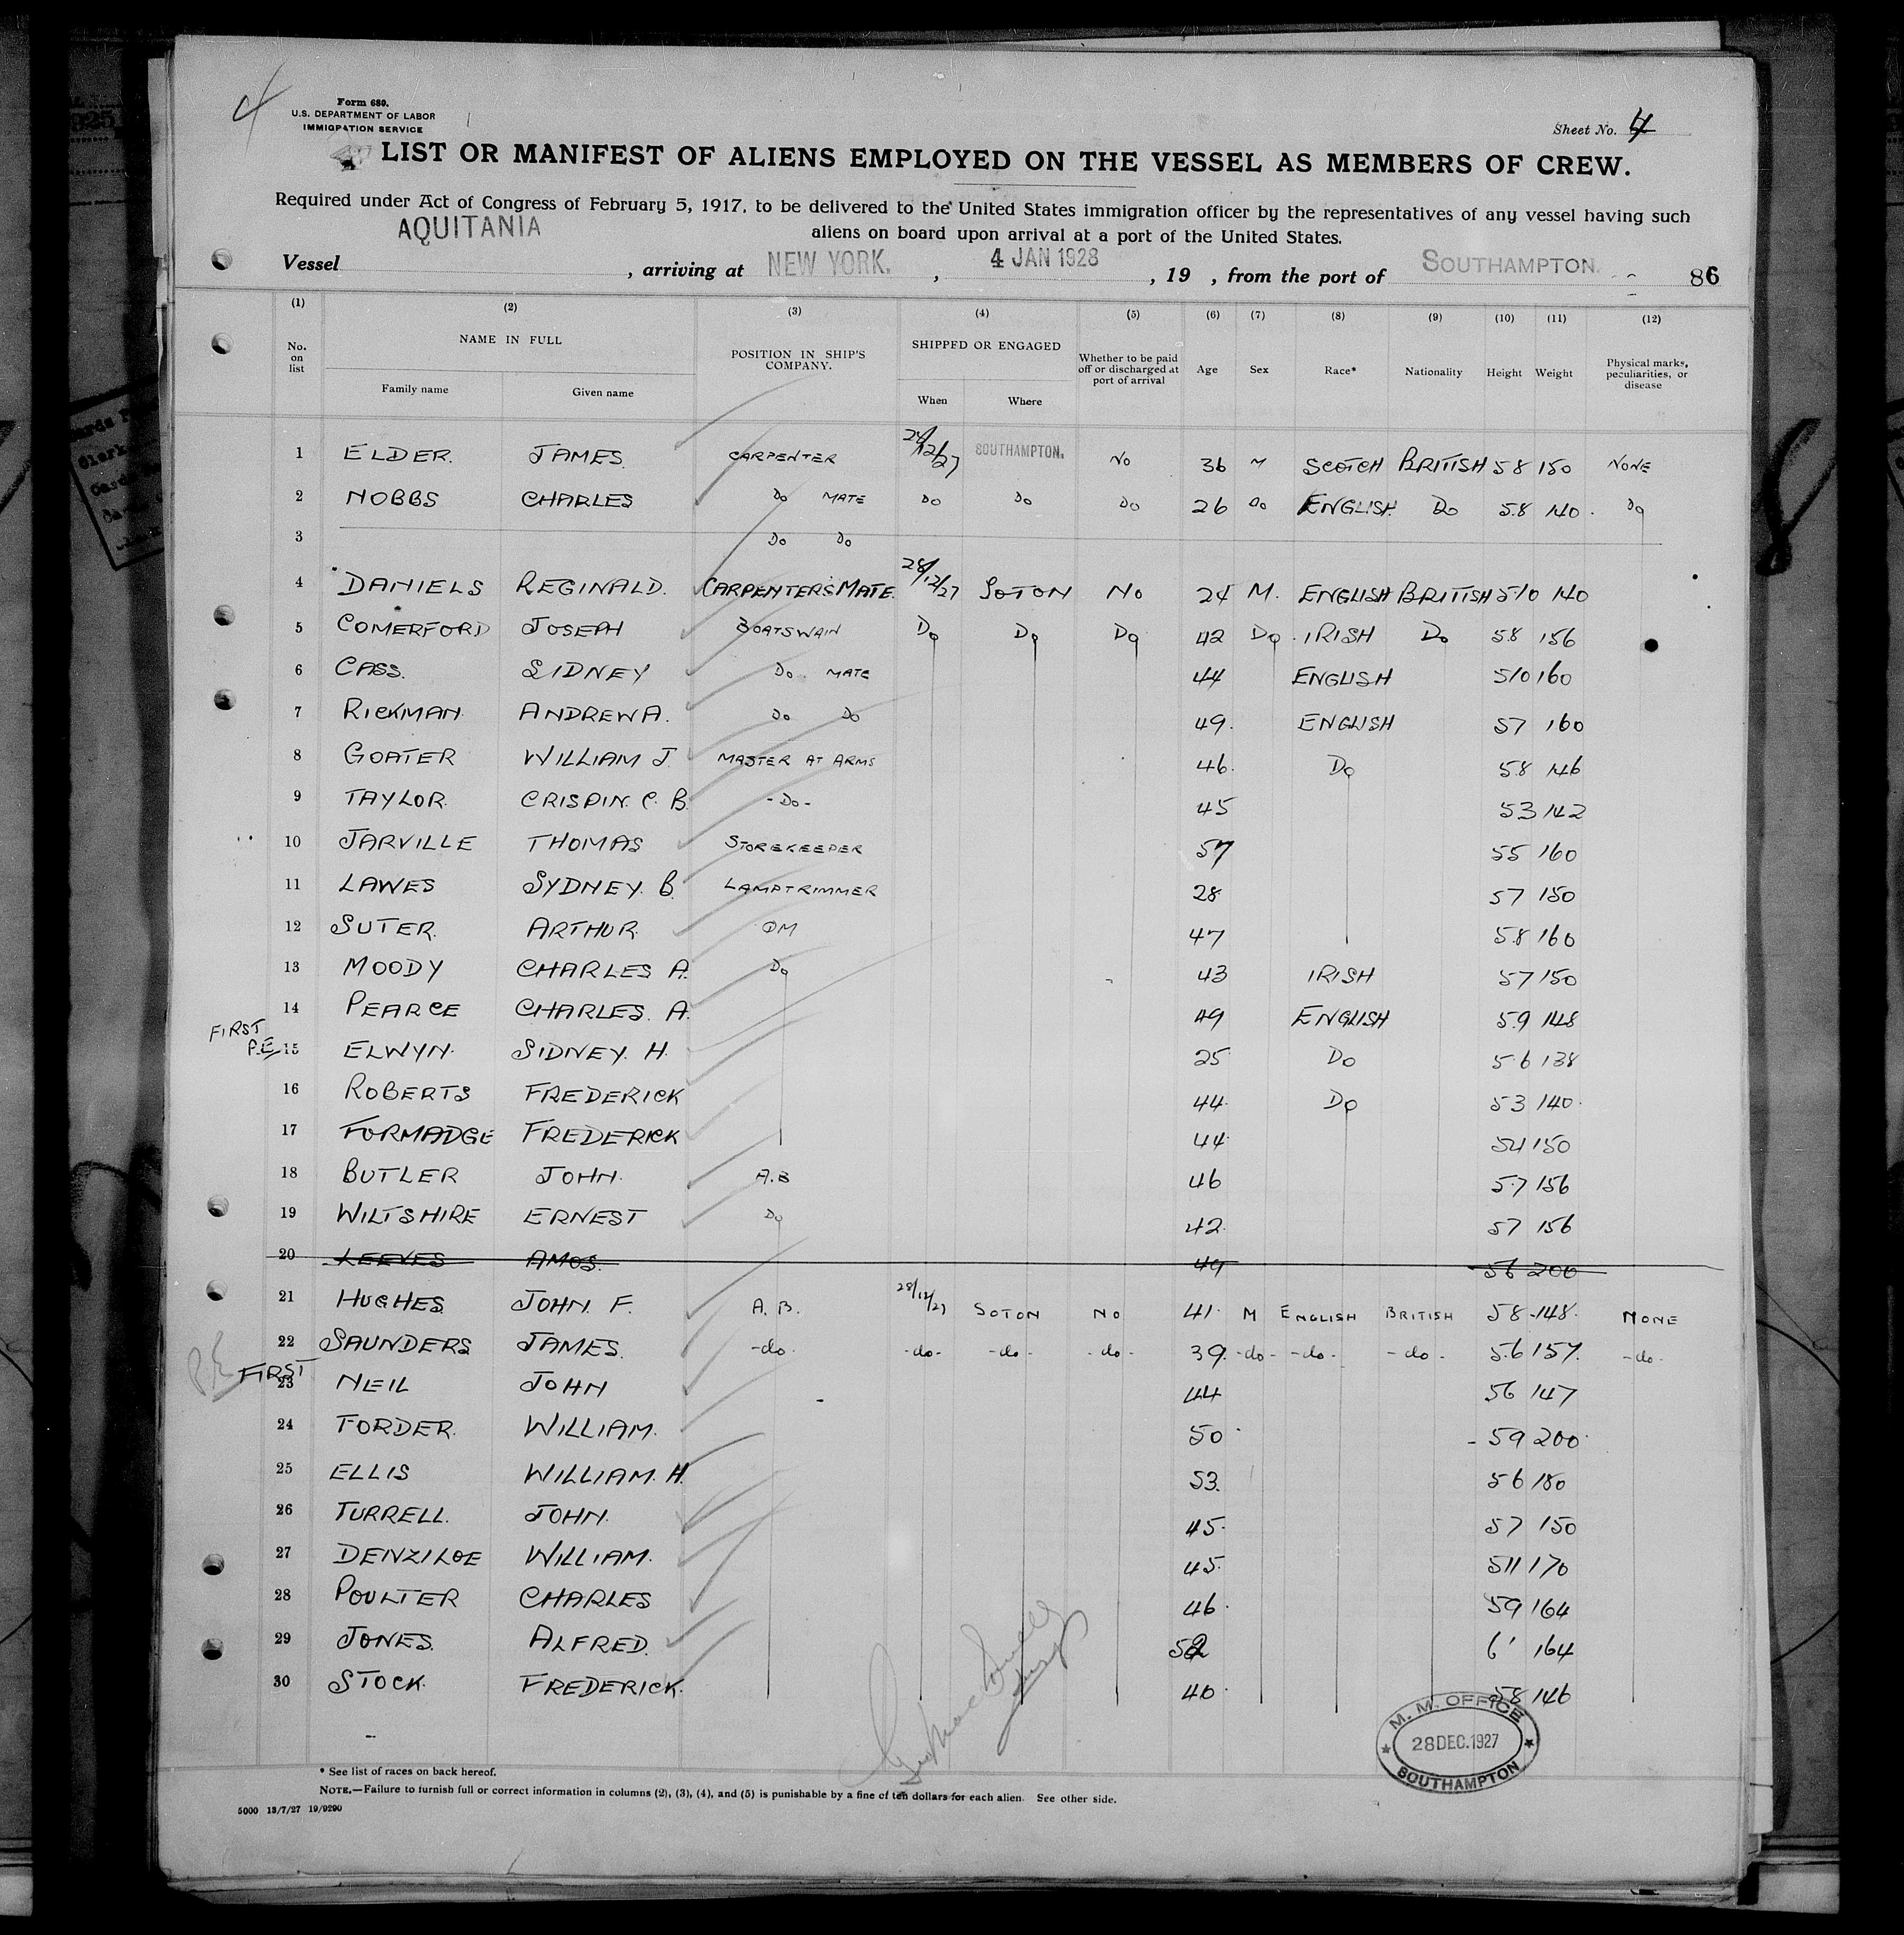 4
Form 680.
U.S. DEPARTMENT OF LABOR
IMMIGRATION SERVICE
Sheet No. 4
LIST OR MANIFEST OF ALIENS EMPLOYED ON THE VESSEL AS MEMBERS OF CREW.
Required under Act of Congress of February 5, 1917, to be delivered to the United States immigration officer by the representatives of any vessel having such
aliens on board upon arrival at a port of the United States.
Vessel AQUITANIA, arriving at NEW YORK., 4 JAN 1928, 19 , from the port of SOUTHAMPTON. 86
(1) (2) (3) (4) (5) (6) (7) (8) (9) (10) (11) (12)
No. on list NAME IN FULL POSITION IN SHIP'S COMPANY. SHIPPED OR ENGAGED Whether to be paid off or discharged at port of arrival Age Sex Race* Nationality Height Weight Physical marks, peculiarities, or disease
Family name Given name When Where
1 ELDER. JAMES. CARPENTER 24/12/27 SOUTHAMPTON. No 36 M SCOTCH BRITISH 58 150 NONE
2 NOBBS CHARLES Do MATE Do Do Do 26 Do ENGLISH. Do 5.8 140. Do
3 Do Do
4 DANIELS REGINALD. CARPENTERS MATE. 28/12/27 SOTON No 24 M. ENGLISH BRITISH 510 140
5 COMERFORD JOSEPH BOATSWAIN Do Do Do 42 Do IRISH Do 58 156
6 CASS. SIDNEY Do. MATE 44 ENGLISH 510 160
7 RICKMAN ANDREW A. Do Do 49. ENGLISH 57 160
8 GOATER WILLIAM J. MASTER AT ARMS 46. Do 58 146
9 TAYLOR. CRISPIN. C. B. -Do- 45 53 142
10 JARVILLE THOMAS STOREKEEPER 57 55 160
11 LAWES SYDNEY. B. LAMPTRIMMER 28 57 150
12 SUTER. ARTHUR. QM 47 5.8 160
13 MOODY CHARLES A. Do 43 IRISH 57 150
14 PEARCE CHARLES. A. 49 ENGLISH 5.9 148
FIRST P.E. 15 ELWYN. SIDNEY. H. 25 Do 5.6 138
16 ROBERTS FREDERICK 44 Do 53 140.
17 FURMADGE FREDERICK 44 54 150
18 BUTLER JOHN. A.B 46 5.7 156
19 WILTSHIRE ERNEST Do 42. 57 156
20 LEEVES AMOS. 49 56 200
21 HUGHES. JOHN. F. A. B. 28/12/27 SOTON No 41. M ENGLISH BRITISH 58 148. NONE
22 SAUNDERS JAMES. -do- -do- -do- -do- 39. -do- -do- -do- 5.6 157. -do-
P.E. FIRST 23 NEIL JOHN 44 56 147
24 FORDER. WILLIAM. 50 59 200
25 ELLIS WILLIAM. H. 53. 56 180
26 TURRELL. JOHN. 45. 57 150
27 DENZILOE WILLIAM. 45. 511 170
28 POULTER CHARLES 46. 59 164
29 JONES. ALFRED. 6' 164
30 STOCK. FREDERICK. 40. 58 146
M. M. OFFICE
28 DEC. 1927
SOUTHAMPTON
* See list of races on back hereof.
NOTE.—Failure to furnish full or correct information in columns (2), (3), (4), and (5) is punishable by a fine of ten dollars for each alien. See other side.
5000 13/7/27 19/9290